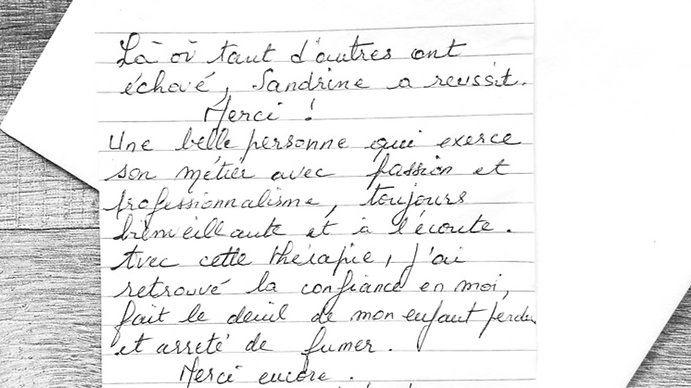 Là où tant d'autres ont
échoué, Sandrine a reussit.
Merci !
Une belle personne qui exerce
son métier avec passion et
professionnalisme, toujours
bienveillante et à l'écoute.
Avec cette thérapie, j'ai
retrouvé la confiance en moi,
fait le deuil de mon enfant perdu
et arreté de fumer.
Merci encore.